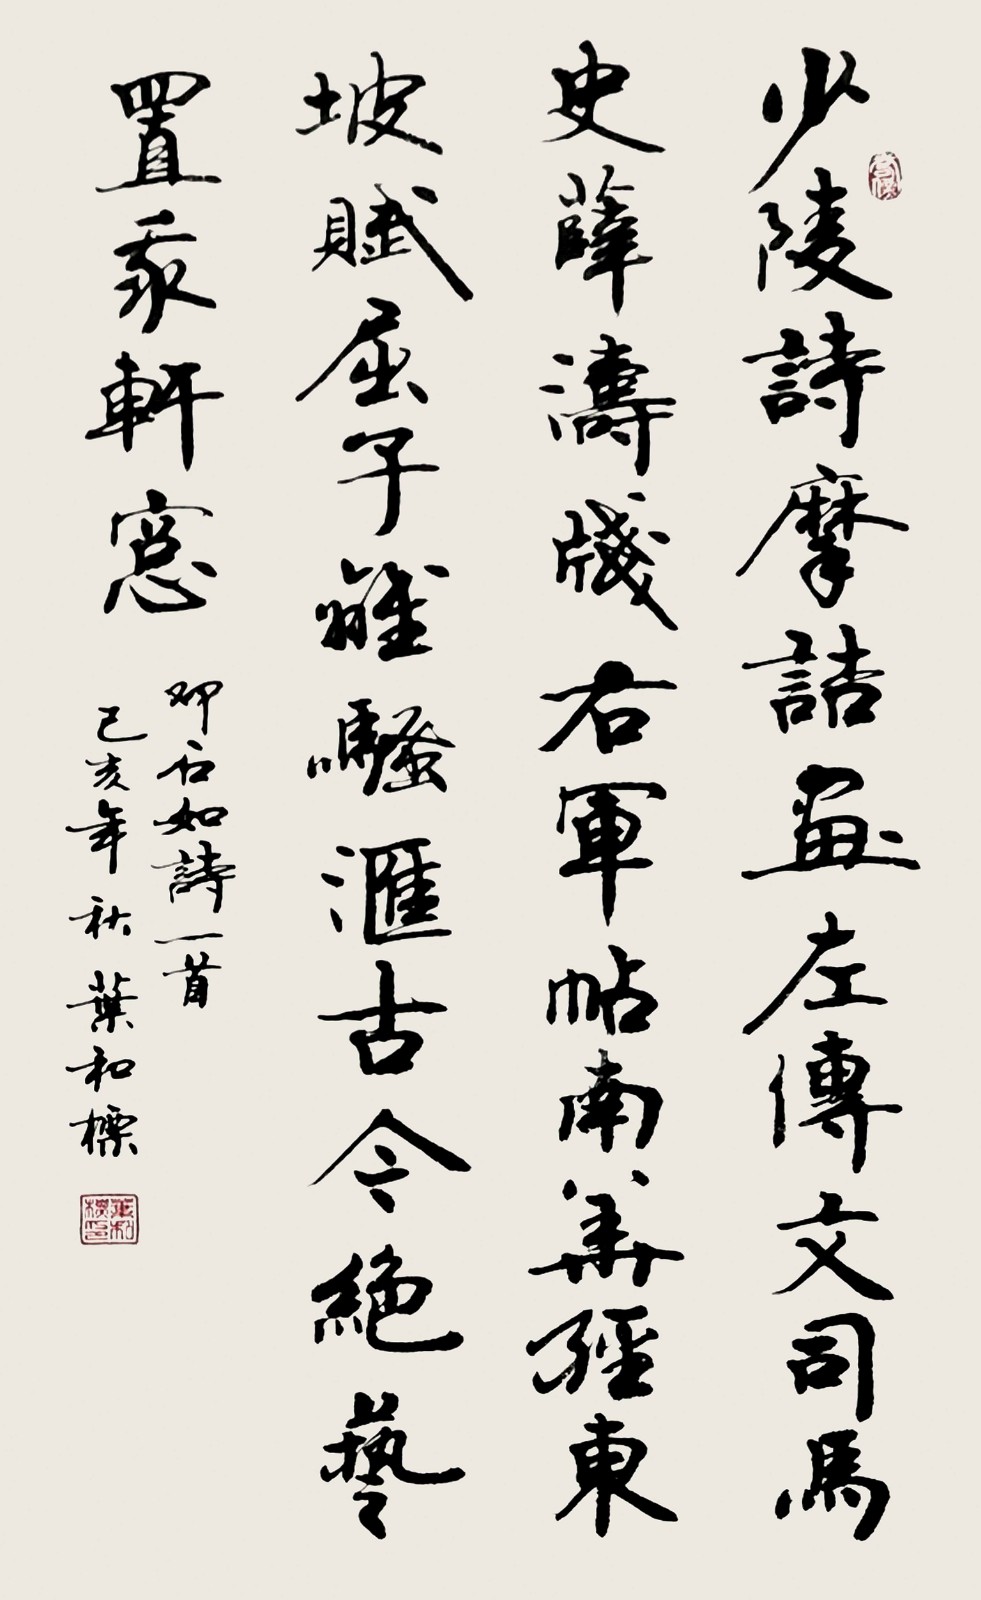 少陵詩摩詰畫左傳文司馬
史薛濤牋右軍帖南華經東
坡賦屈子離騷滙古今絕藝
置我軒窓
邓石如詩一首
己亥年秋葉和標